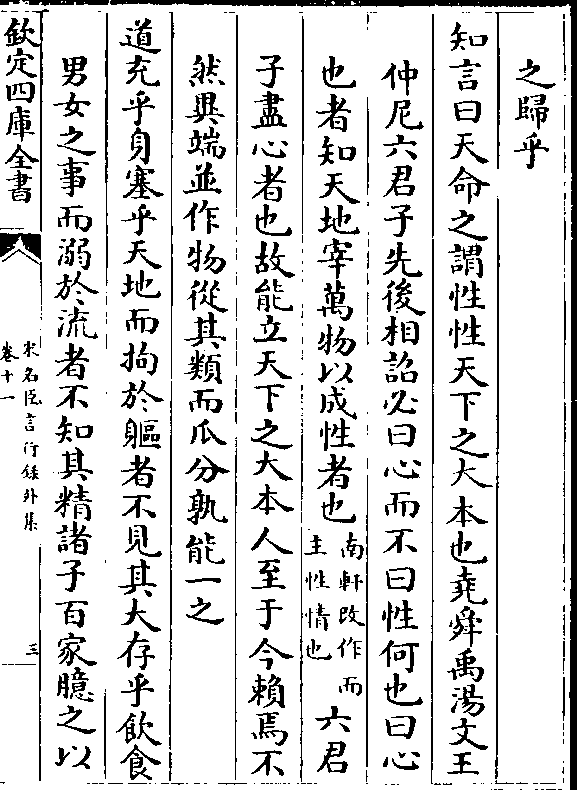 之歸乎
知言曰天命之謂性性天下之大本也堯舜禹湯文王
仲尼六君子先後相詔必曰心而不曰性何也曰心
也者知天地宰萬物以成性者也南軒改作而主性情也六君
子盡心者也故能立天下之大本人至于今賴焉不
然異端並作物從其類而瓜分孰能一之
道充乎身塞乎天地而拘於軀者不見其大存乎飲食
男女之事而溺於流者不知其精諸子百家臆之以
欽定四庫全書
宋名臣言行錄外集
卷十一
三